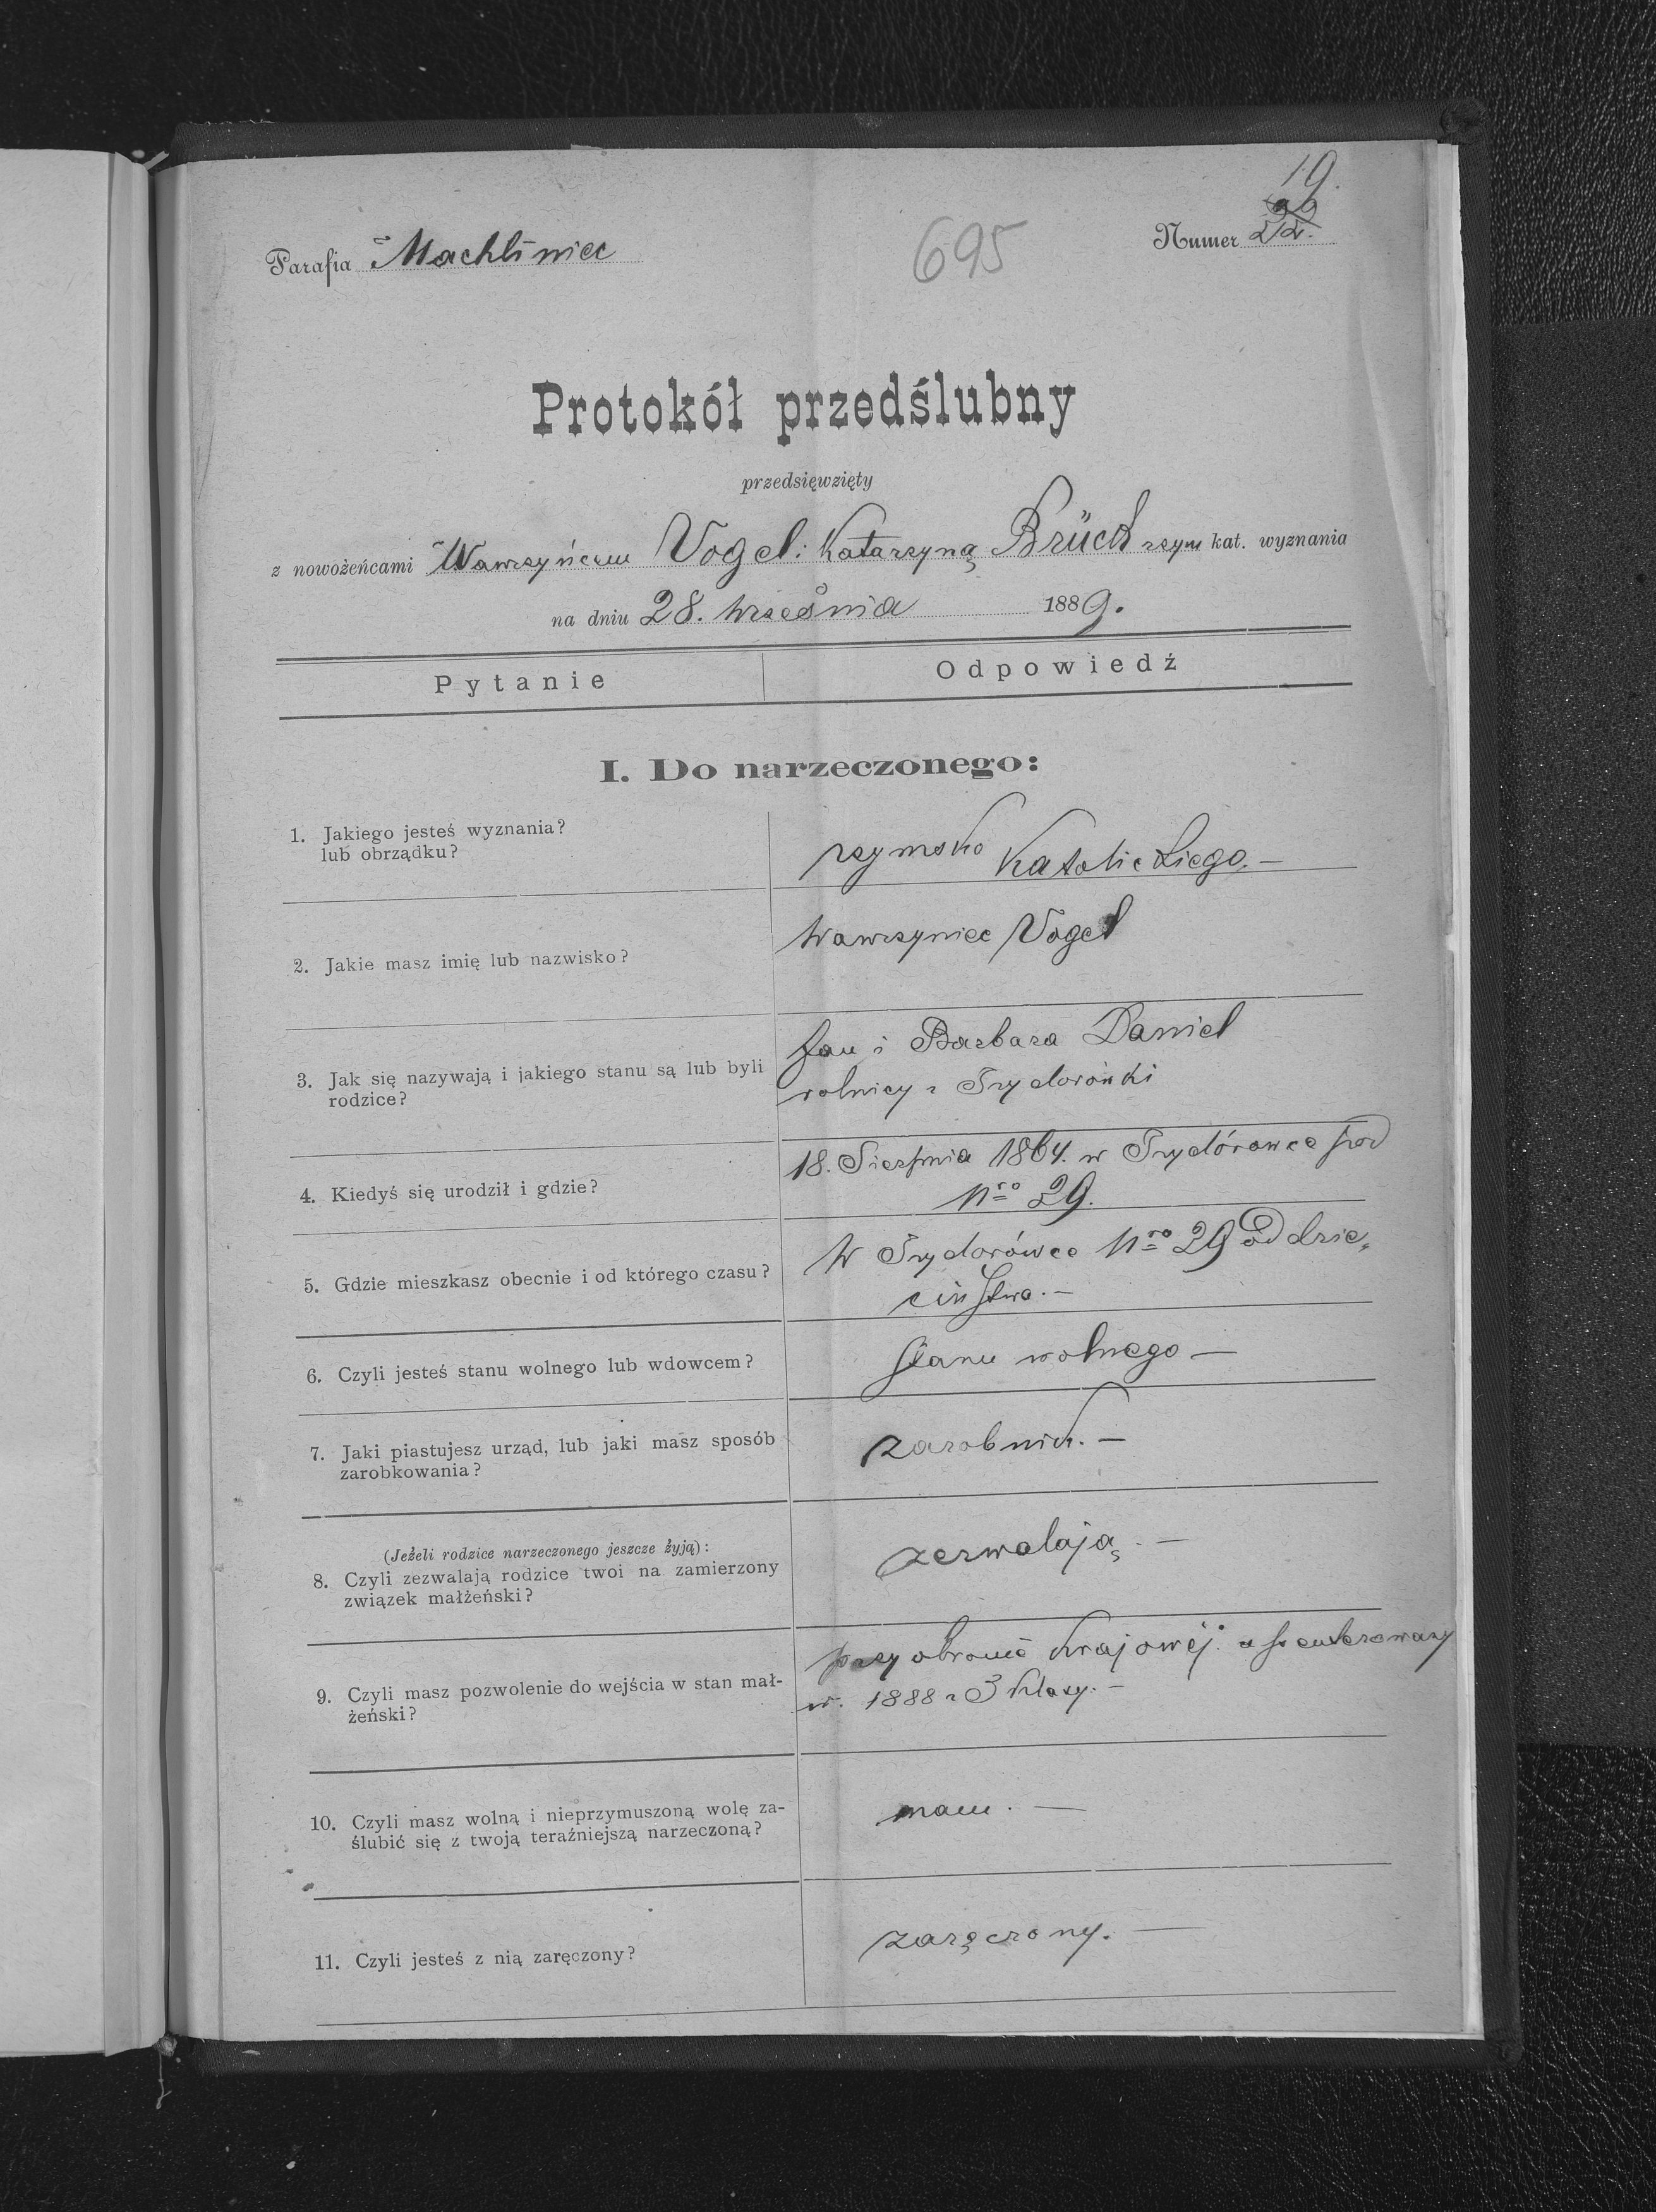 19.
Parafia Machliniec
695
Numer 22.
Protokół przedślubny
przedsięwzięty
z nowożeńcami Wawrzyńcem Vogel i Katarzyną Brück rzym kat. wyznania
na dniu 28. września 1889.
Pytanie
Odpowiedź
I. Do narzeczonego:
1. Jakiego jesteś wyznania?
lub obrządku?
rzymsko Katolickiego.—
2. Jakie masz imię lub nazwisko?
Wawrzyniec Vogel
3. Jak się nazywają i jakiego stanu są lub byli
rodzice?
Jan i Barbara Daniel
rolnicy z Izydorówki
4. Kiedyś się urodził i gdzie?
18. Sierpnia 1864. w Izydórowce pod
Nro 29.
5. Gdzie mieszkasz obecnie i od którego czasu?
W Izydorówce Nro 29 od dzie„
ciństwa.—
6. Czyli jesteś stanu wolnego lub wdowcem?
stanu wolnego —
7. Jaki piastujesz urząd, lub jaki masz sposób
zarobkowania?
zarobnik.—
(Jeżeli rodzice narzeczonego jeszcze żyją):
8. Czyli zezwalają rodzice twoi na zamierzony
związek małżeński?
zezwalają.—
9. Czyli masz pozwolenie do wejścia w stan mał-
żeński?
przy obronie Krajowéj
w. 1888 z 3 klasy.—
10. Czyli masz wolną i nieprzymuszoną wolę za-
ślubić się z twoją teraźniejszą narzeczoną?
mam.—
11. Czyli jesteś z nią zaręczony?
zaręczony.—